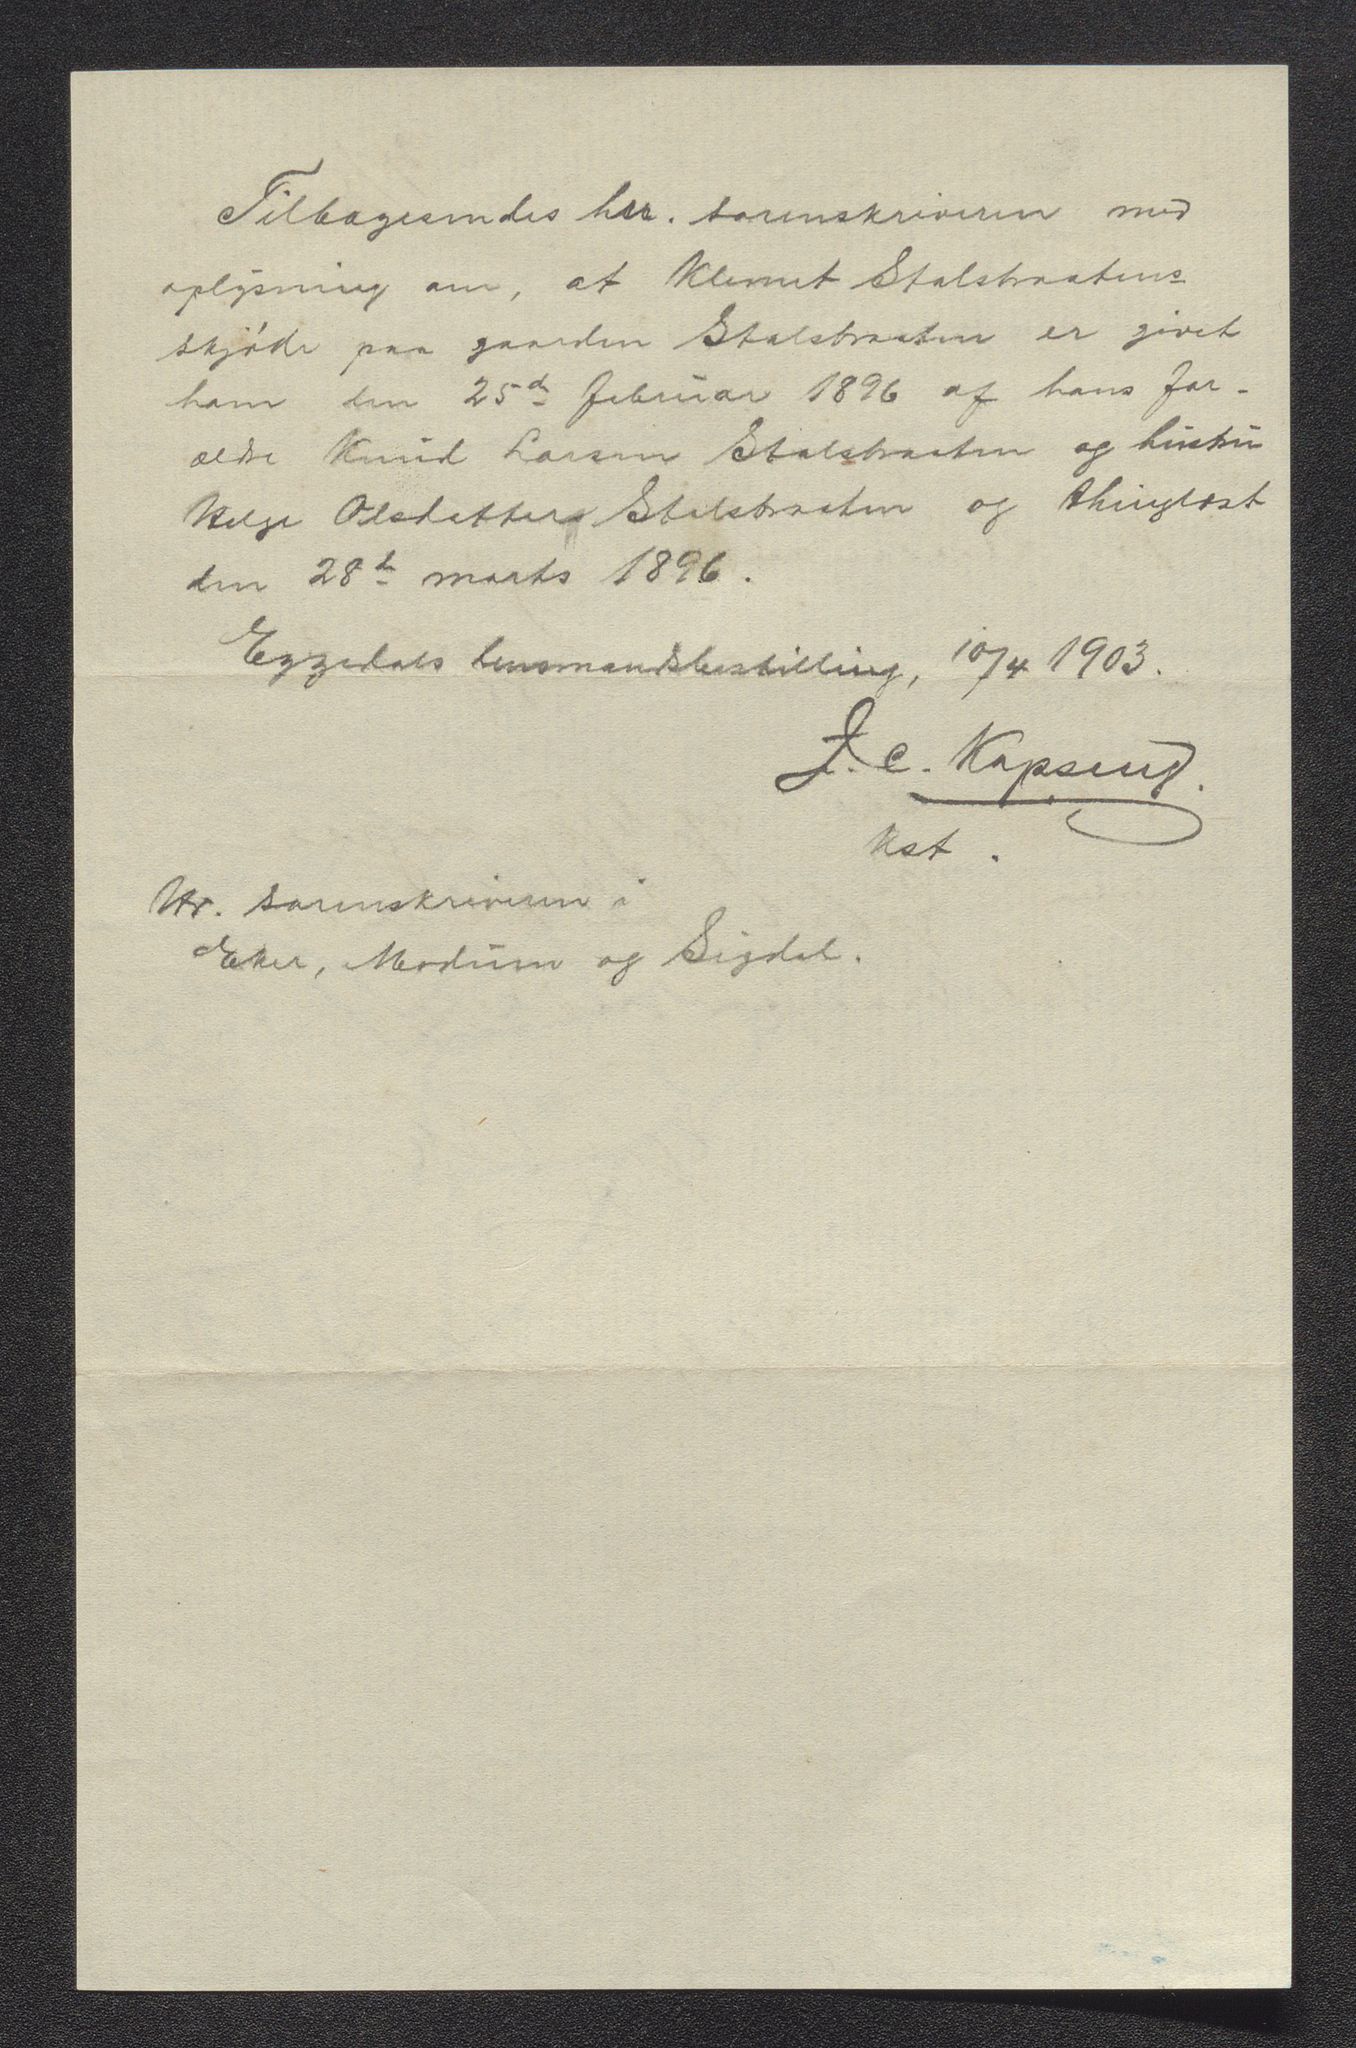 Tilbagesendes herr. sorenskriveren med
oplysning om, at Klemet Stalsbraatens
skjöde paa gaarden Stalsbraaten er givet
ham den 25d februar 1896 af hans for-
ældre Knud Larsen Stalsbraaten og hustru
Helge Olsdatter Stalsbraaten og thinglæst
den 28d marts 1896.
Eggedals lensmandsbestilling, 10/4 1903.
J. C. Kopseng.
Kst.
Hr. sorenskriveren i
Eker, Modum og Sigdal.